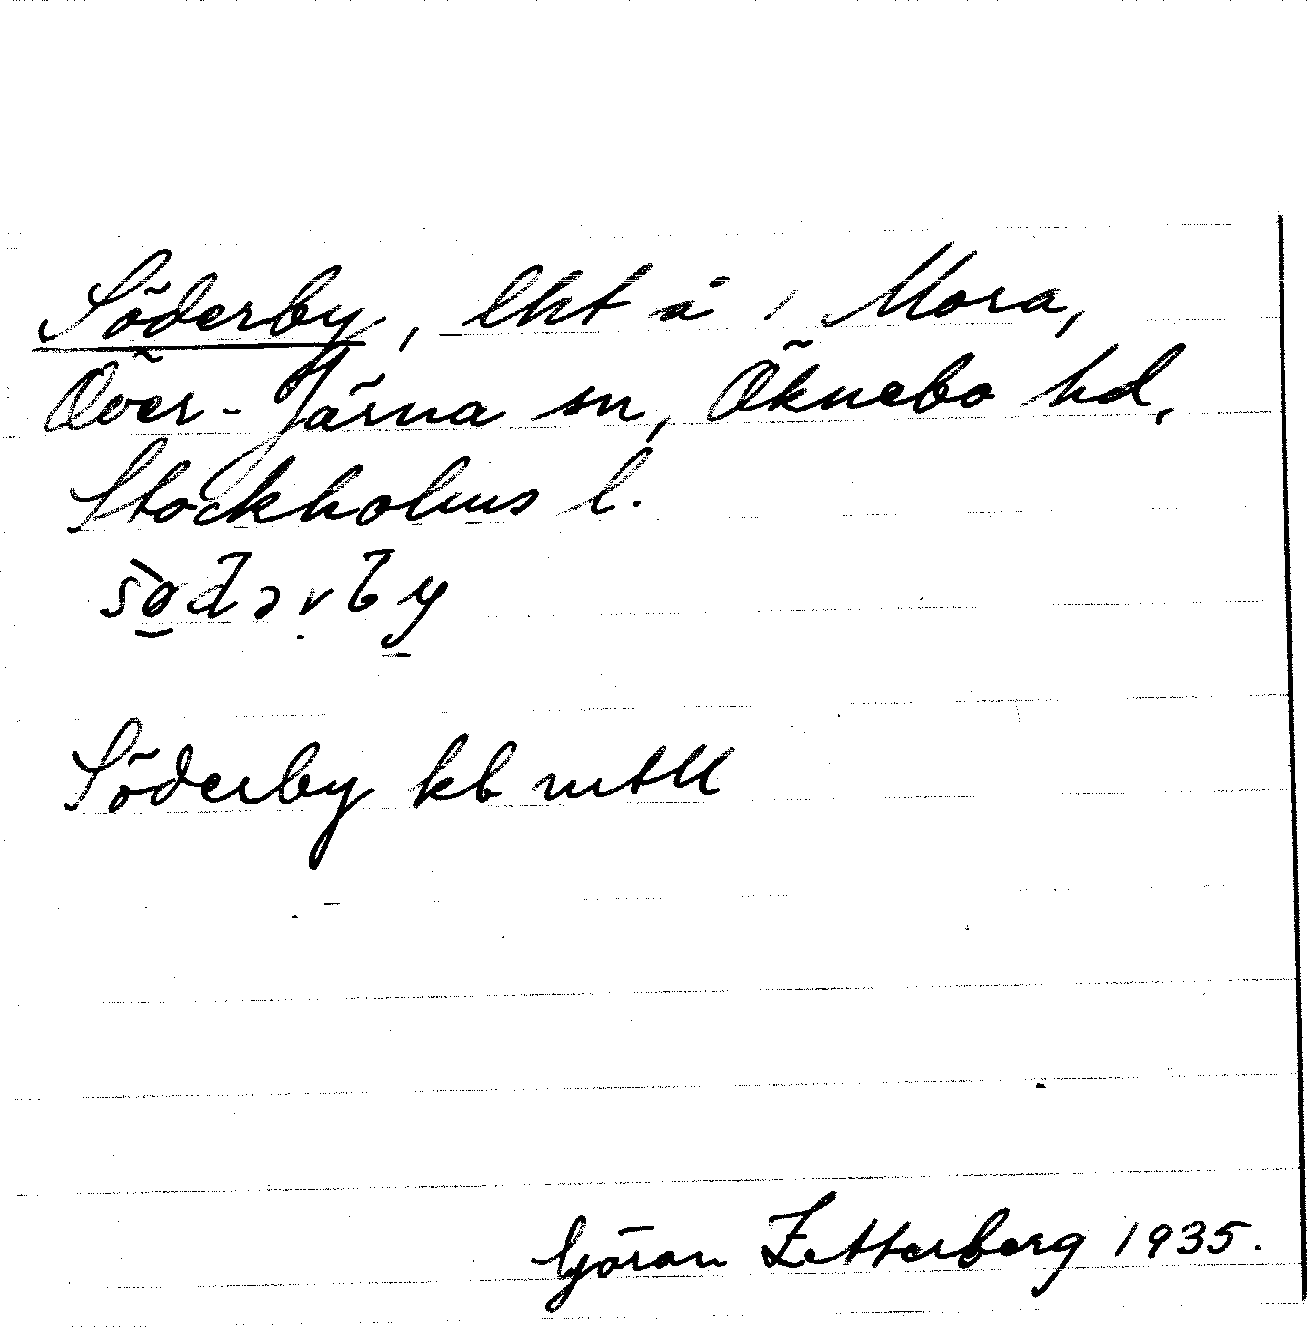 Söderby, lht å 1 Mora,
Över-Järna sn, Öknebo hd,
Stockholms l.
Söderby kb mtll
Göran Zetterberg 1935.